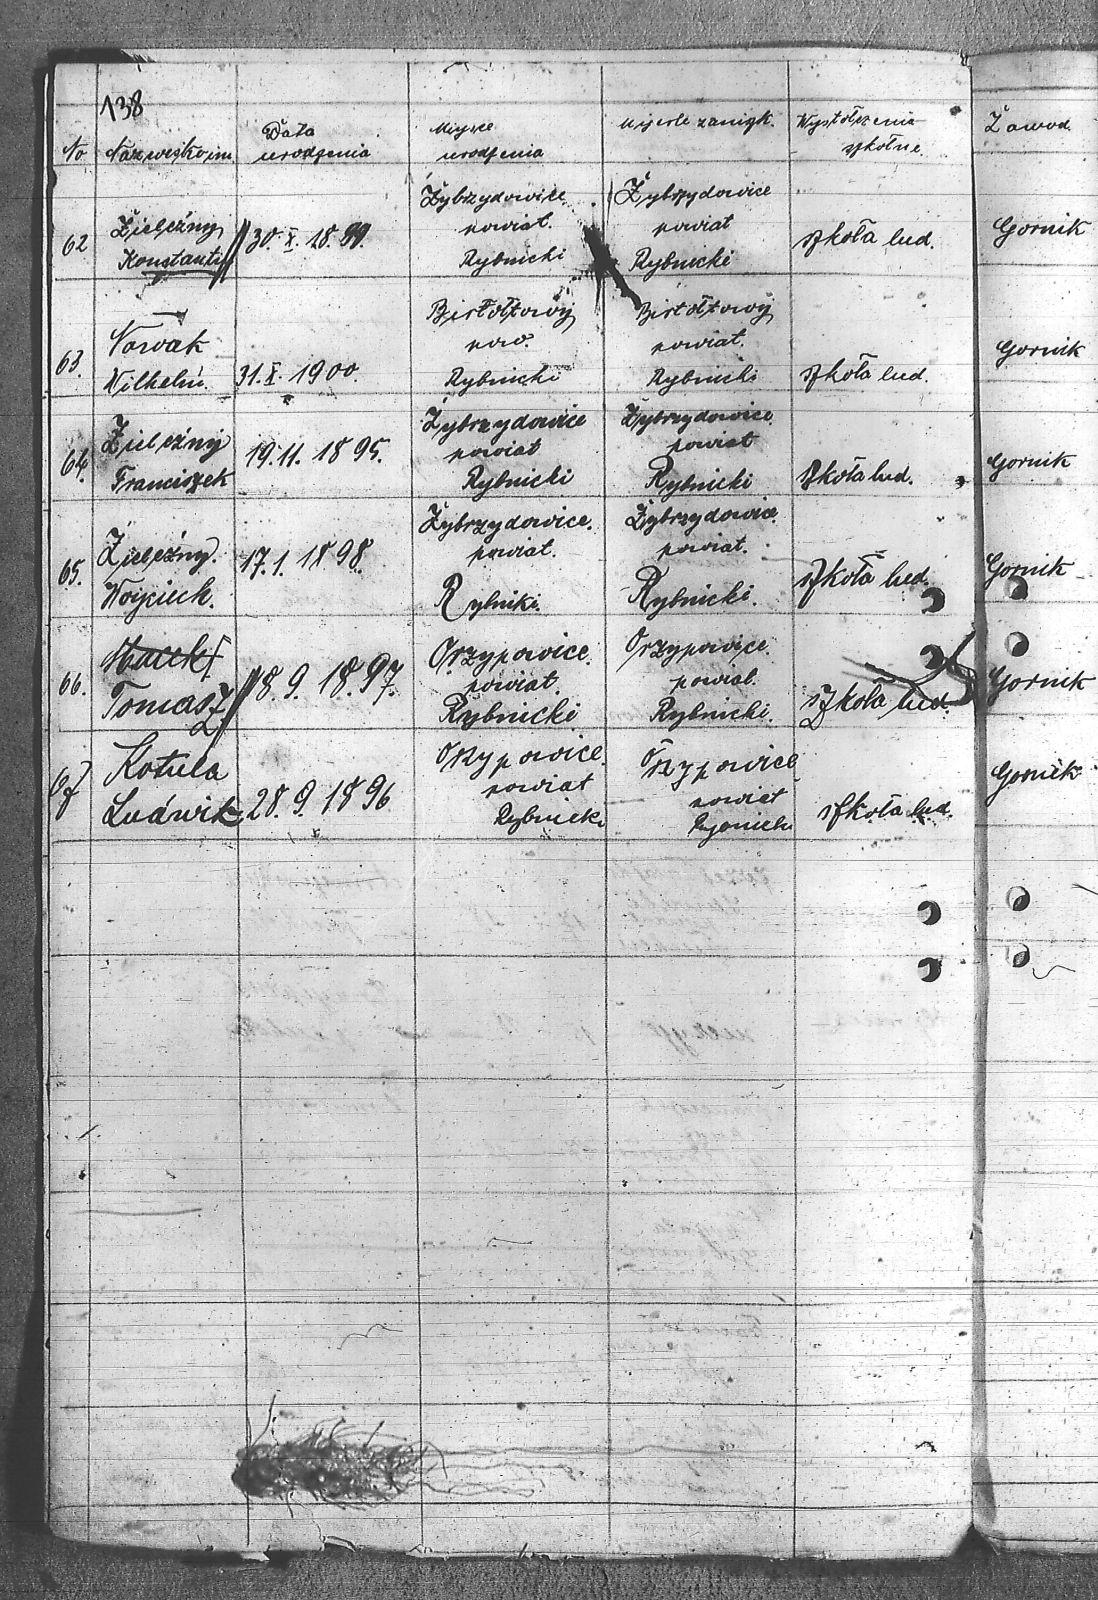 138
No Nazwisko im. Data urodzenia Miejsce urodzenia Miejsce zamięk. Wyksztołcenie szkolne. Zawod.
62 Zielezny Konstanti 30. X. 18.99. Zybrzydowice powiat. Rybnicki Zybrzydowice powiat Rybnicki szkoła lud. Gornik
63. Nowak Wilhelm. 31. X. 1900. pow. Rybnicki powiat. Rybnicki szkoła lud. Gornik
64. Zielezny Franciszek 19.11. 1895. Zybrzydowice powiat Rybnicki Zybrzydowice powiat Rybnicki szkoła lud. Gornik
65. Zielezny. Wojciech. 17.1. 1898. Zybrzydowice. powiat. Rybniki. Zybrzydowice. powiat. Rybnicki. szkoła lud. Gornik
66. Tomasz 18.9. 18.97. Orzypowice. powiat. Rybnicki Orzypowice. powiat. Rybnicki. szkoła lud. Gornik
67 Kotula Ludwik 28.9. 1896 Orzypowice powiat Rybnicki Orzypowice powiat szkoła lud. Gornik